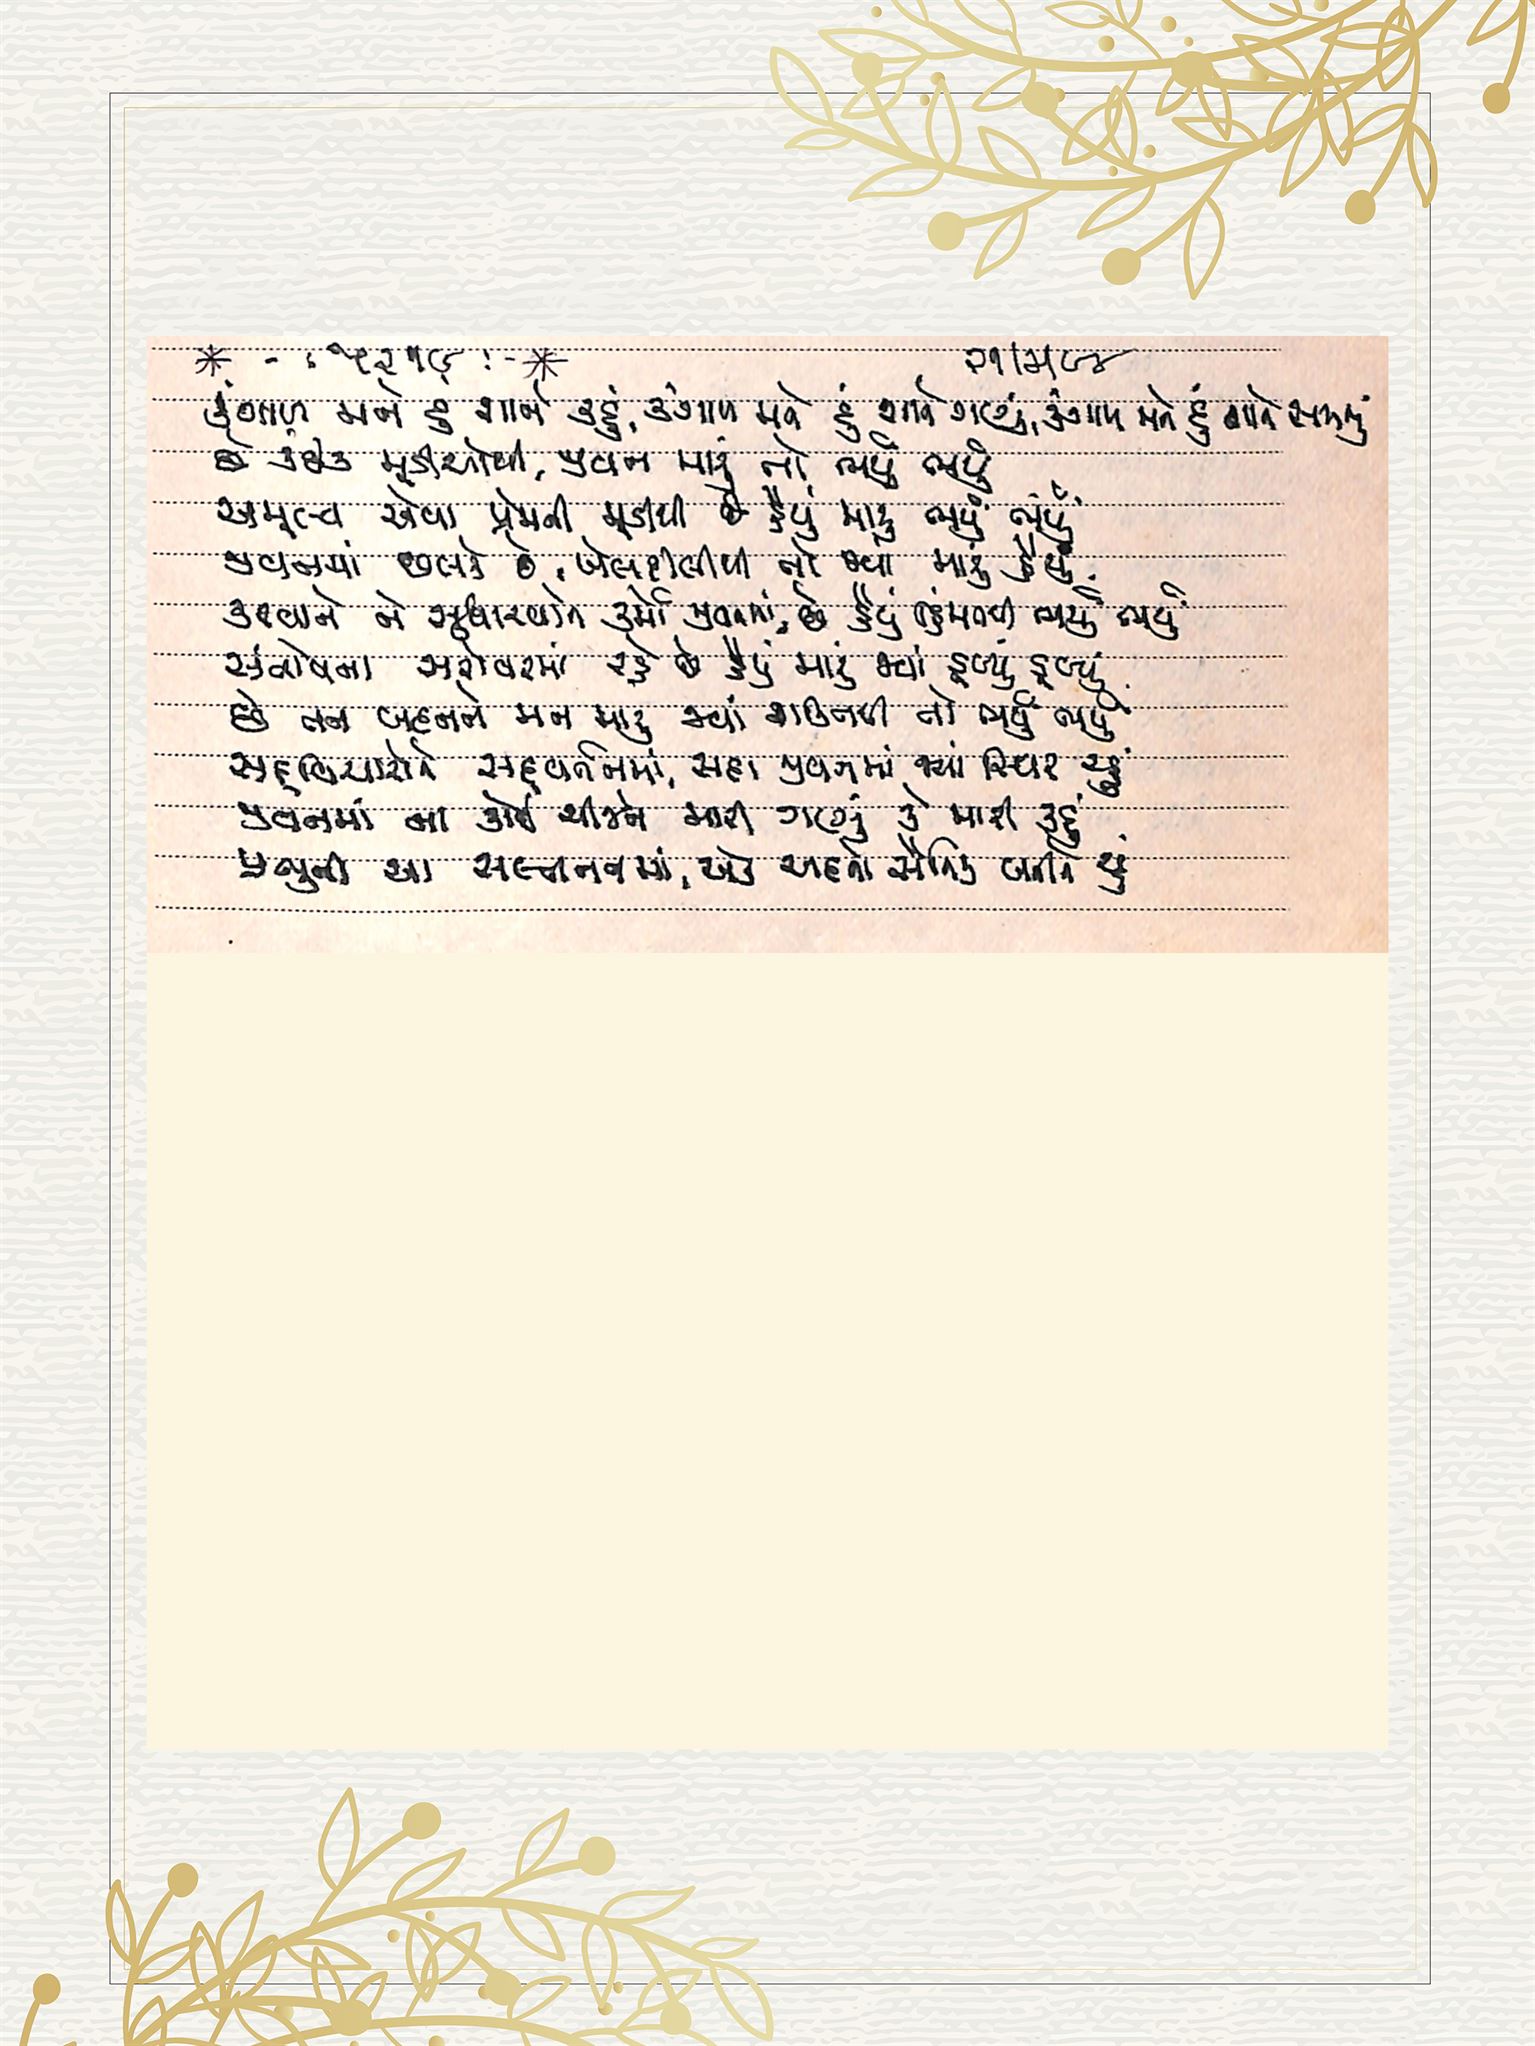 કંગાળ મને હું શાને કહું, કંગાળ મને હું શાને ગણું, કંગાળ મને હું શાને સમજું
છે કંઈક મૂડીઓથી, જીવન મારું તો ભર્યું ભર્યું
અમૂલ્ય એવા પ્રેમની મૂડીથી છે હૈયું મારું ભર્યું ભર્યું
જીવનમાં છલકે છે, ખેલદીલીથી તો જ્યાં મારું હૈયું
કરવાને ને સુધારવાને કર્મો જીવનમાં, છે હૈયું હિંમતથી ભર્યું ભર્યું
સંતોષના સરોવરમાં રહે છે હૈયું મારું જ્યાં ડૂબ્યું ડૂબ્યું
છે તન બદનને મન મારું જ્યાં શક્તિથી તો ભર્યું ભર્યું
સદ્‌વિચારોને સદ્‌વર્તનમાં, સદા જીવનમાં જ્યાં સ્થિર રહું
જીવનમાં ના કોઈ ચીજને મારી ગણું કે મારી કહું
પ્રભુની આ સલ્તનતમાં, એક અદનો સૈનિક બનીને રહું